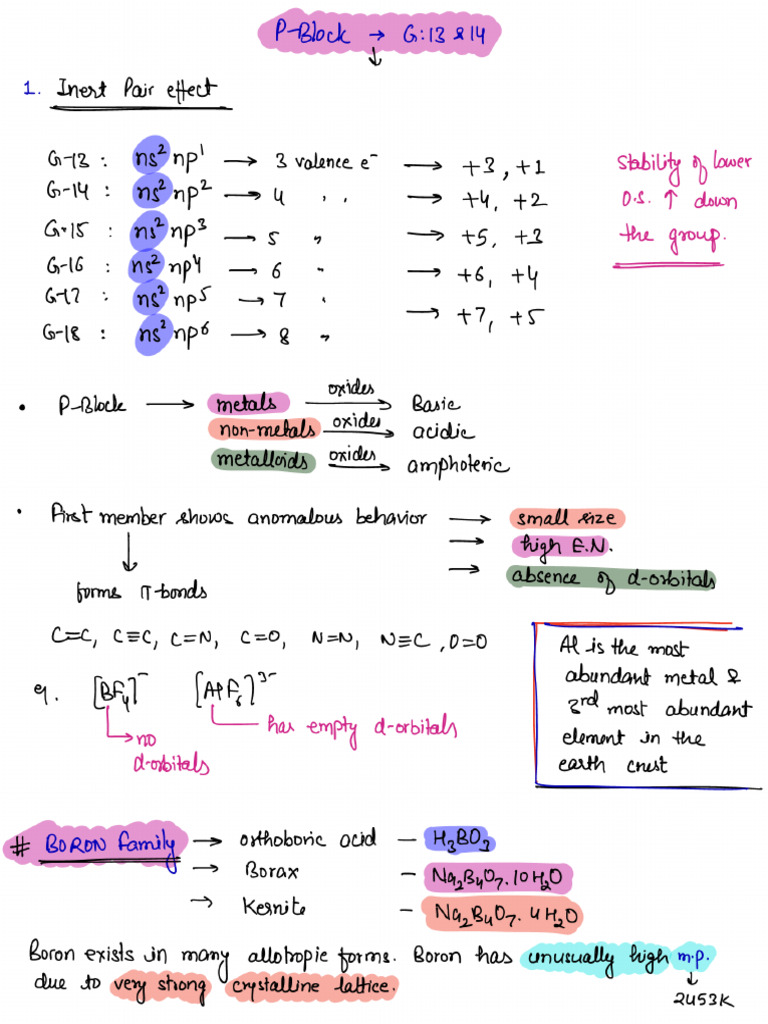 P-Block → G:13 & 14
1. Inert Pair effect
G-13 : ns² np¹ → 3 valence e⁻ → +3, +1
G-14 : ns² np² → 4 " → +4, +2
G-15 : ns² np³ → 5 " → +5, +3
G-16 : ns² np⁴ → 6 " → +6, +4
G-17 : ns² np⁵ → 7 " → +7, +5
G-18 : ns² np⁶ → 8 "
Stability of lower
O.S. ↑ down
the group.
• P-Block → metals oxides → Basic
non-metals oxides → acidic
metalloids oxides → amphoteric
• First member shows anomalous behavior → small size
→ high E.N.
→ absence of d-orbitals
forms π-bonds
C=C, C≡C, C=N, C=O, N=N, N≡C, O=O
eg. [BF₄]⁻ [AlF₆]³⁻
→ no
d-orbitals
has empty d-orbitals
Al is the most
abundant metal &
3rd most abundant
element in the
earth crust
# BORON family → orthoboric acid – H₃BO₃
→ Borax – Na₂B₄O₇.10H₂O
→ Kernite – Na₂B₄O₇.4H₂O
Boron exists in many allotropic forms. Boron has unusually high m.p.
due to very strong crystalline lattice.
2453K